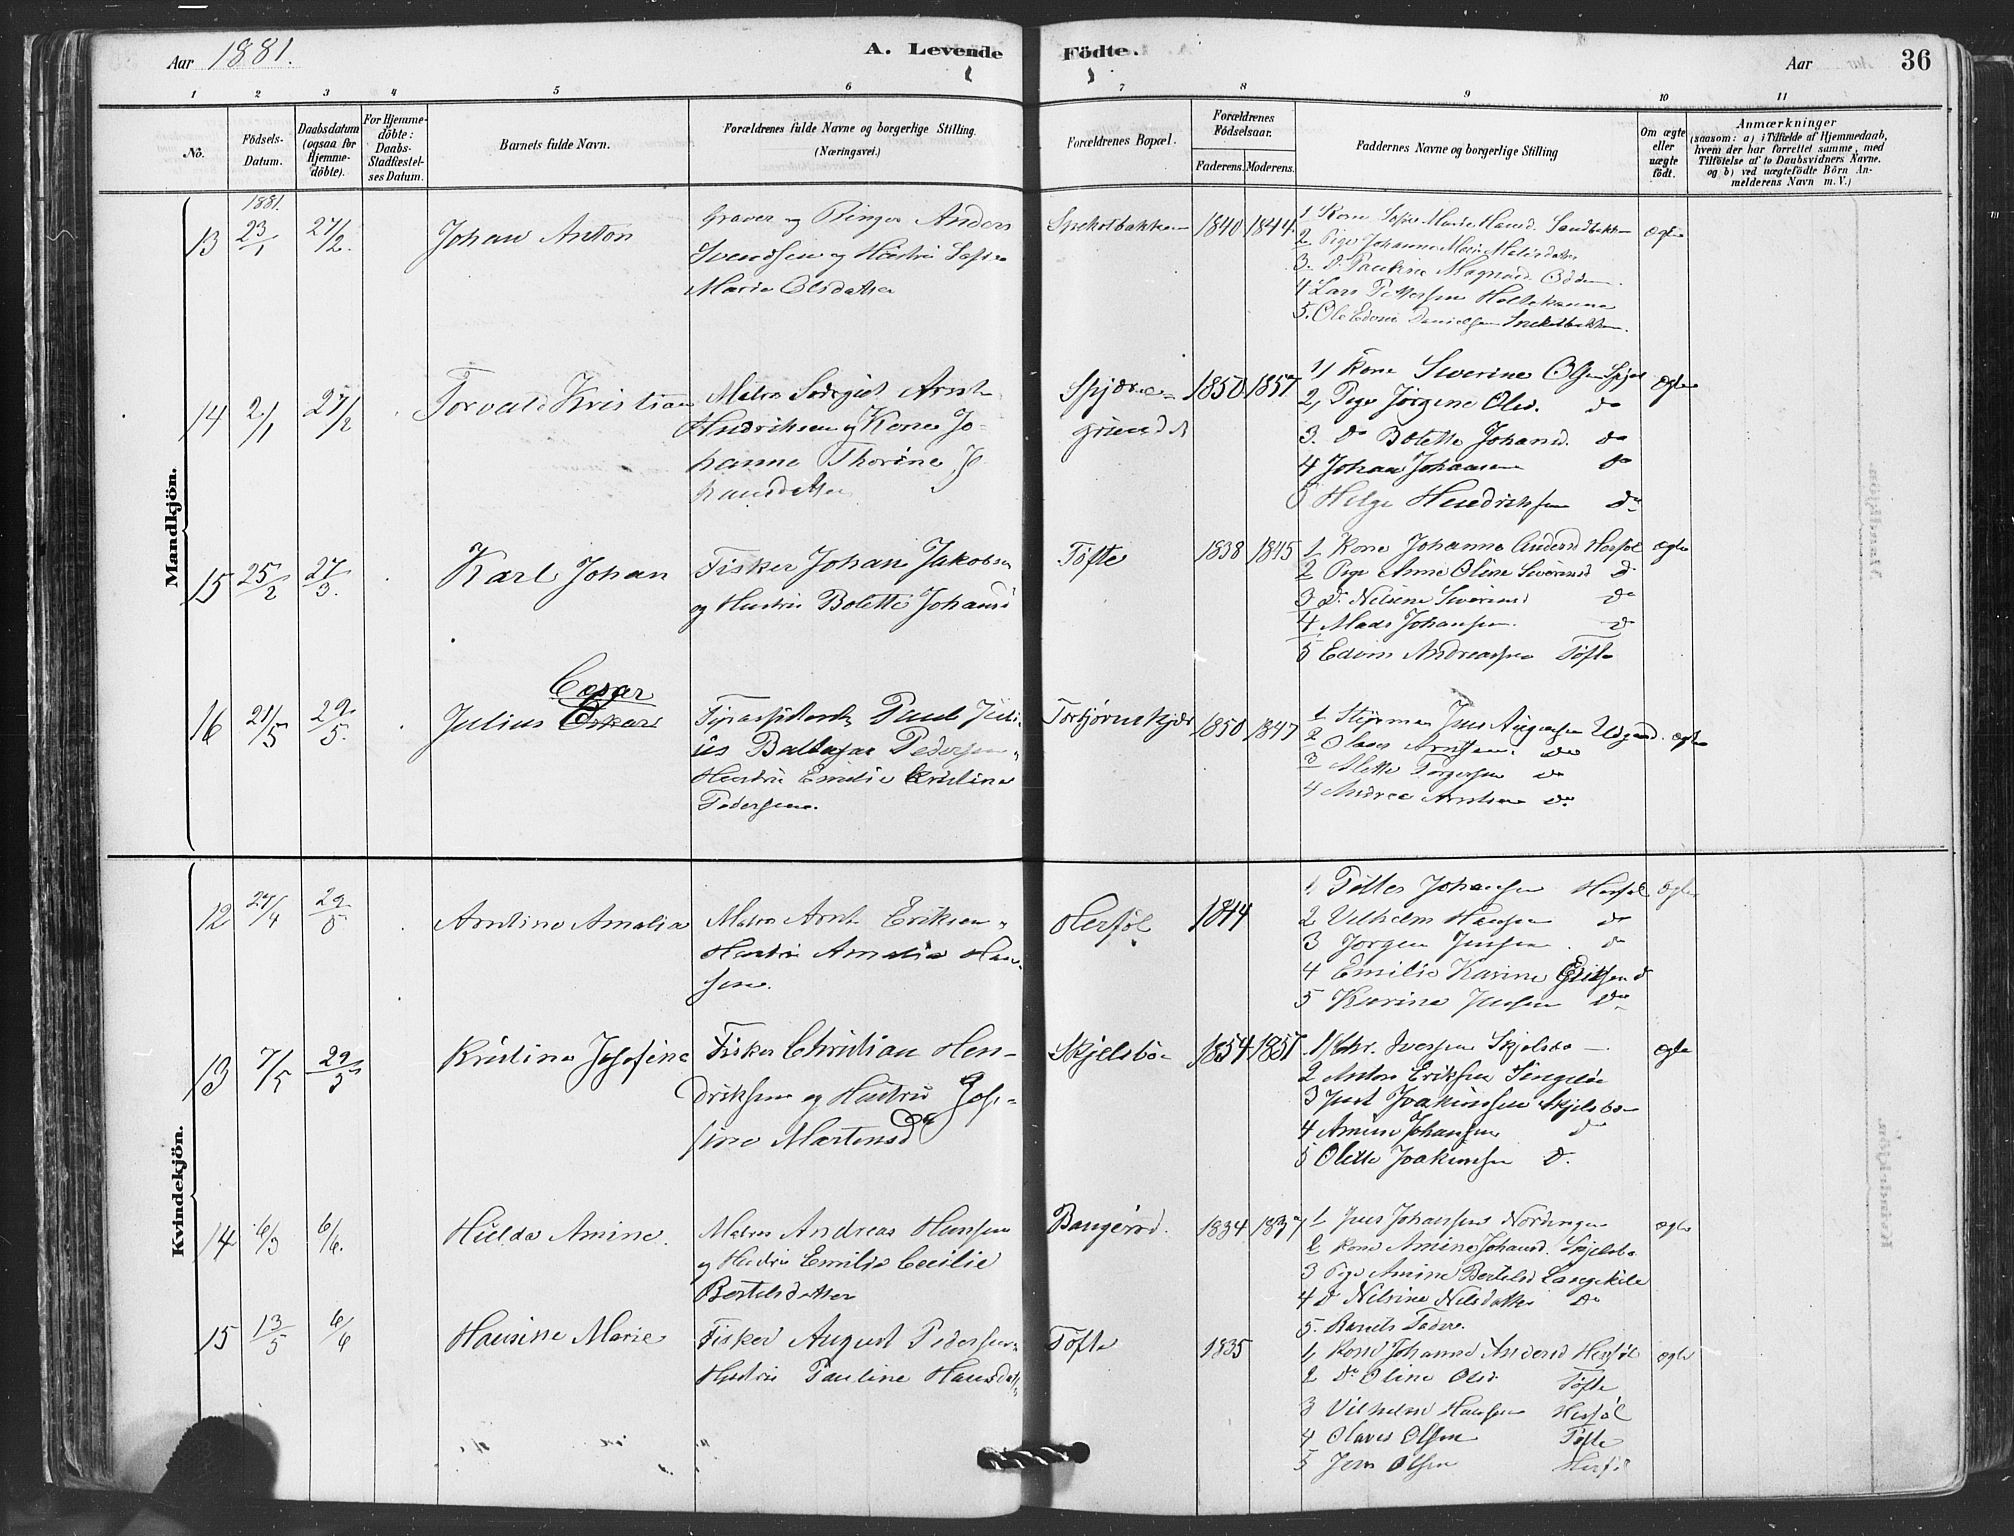 Aar 1881.
A. Levende Födte.
Aar
36
1 2 3 4 5 6 7 8 9 10 11
No.
Födsels-Datum.
Daabsdatum (ogsaa før Hjemmedöbte).
For Hjemmedöbte: Daabs-Stadfestelses Datum.
Barnets fulde Navn.
Forældrenes fulde Navne og borgerlige Stilling. (Næringsvei.)
Forældrenes Bopæl.
Forældrenes Födselsaar.
Faderens. Moderens.
Faddernes Navne og borgerlige Stilling
Om ægte eller uægte födt.
Anmærkninger
(saasom: a) i Tilfælde af Hjemmedaab,
hvem der har forrettet samme, med
Tilföielse af to Daabsvidners Navne.
og b) ved uægtefödte Börn Anmelderens Navn m. V.)
Mandkjön.
1881.
13 23/1 27/2. Johan Anton
Graver og Ringer Anders
Svendsen og Hustru
Marie Olsdatter
1840 1844
1 Kone Marie Sandbakken ægte
2 Pige Johanne
3. do Pauline
4 Lars Pettersen
5. Ole Edvin Danielsen
14 2/1 27/2 Torvald Kristian
Matros Arnt
Hendriksen og Kone Jo-
hanne Thorine Jo
hansdatter
Spjære-
grund
1850 1857
1, Kone Severine Olsen ægte
2, Pige Jörgine Olsd. do
3. do Bolette Johansd. do
4 Johan Johansen do
5 Helge Hendriksen do
15 25/2 27/3. Karl Johan
Fisker Johan Jakobsen
og Hustru Bolette Johansd
Tøfte 1838 1845
1 Kone Johanne Andersd Herføl ægte
2 Pige Anne Oline Severinsd do
3 do Nilsine Severinsd do
4 Mads Johansen. do
5 Edvin Andreassen Tøfte
16 21/5 29/5. Julius Cesar
Paul Juli-
us Baltazar Pedersen
Hustru Emilie Kristine
Pedersen.
Torbjørnskjær 1850 1847
1 Styrman Jens Udgaard. ægte
2 Olaves Arntsen. do
3 Alette Torgersen do
4 Andrea Arntsen do
Kvindekjön.
12 27/4 29/5 Arntine Amalia
Matros Arnt Eriksen
Hustru Amalia Han-
sen.
Herføl 1844
1 Petter Johansen Herføl ægte
2 Vilhelm Hansen do
3 Jørgen Jensen do
4 Emilie Karine Eriksen d
5 Karine Jensen do
13 7/5 29/5 Kristine Josefine
Fisker Christian Hen-
driksen og Hustru Jose-
fine Martensd
Skjelsbo 1854 1857
1 Chr. Iversen Skjelsbo ægte
2 Anton Eriksen
3 Just Joakimsen Skjelsbo
4 Amine Johansen do
5 Olette Joakimsen do.
14 6/3 6/6. Hulda Amine.
Matros Andreas Hansen
og Hustru Emilie Cecilie
Bertelsdatter
Bangerød. 1834 1837
1 Jens Johansen Nordengen ægte
2 Kone Amine Johansd. Skjelsbo
3 Pige Amine Bertelsd Langekile
4 do Nilsine Nilsdatter do
5. Barnets Fader.
15 13/5 6/6 Hansine Marie
Fisker August Pedersen
Hustru Pauline Hansdatt
Tøfte 1835
1, Kone Johanne Andersd Herføl ægte
2 do Oline Olsd Tøfte
3 Vilhelm Hansen Herføl
4 Olaves Olsen Tøfte
5 Jens Olsen Herføl